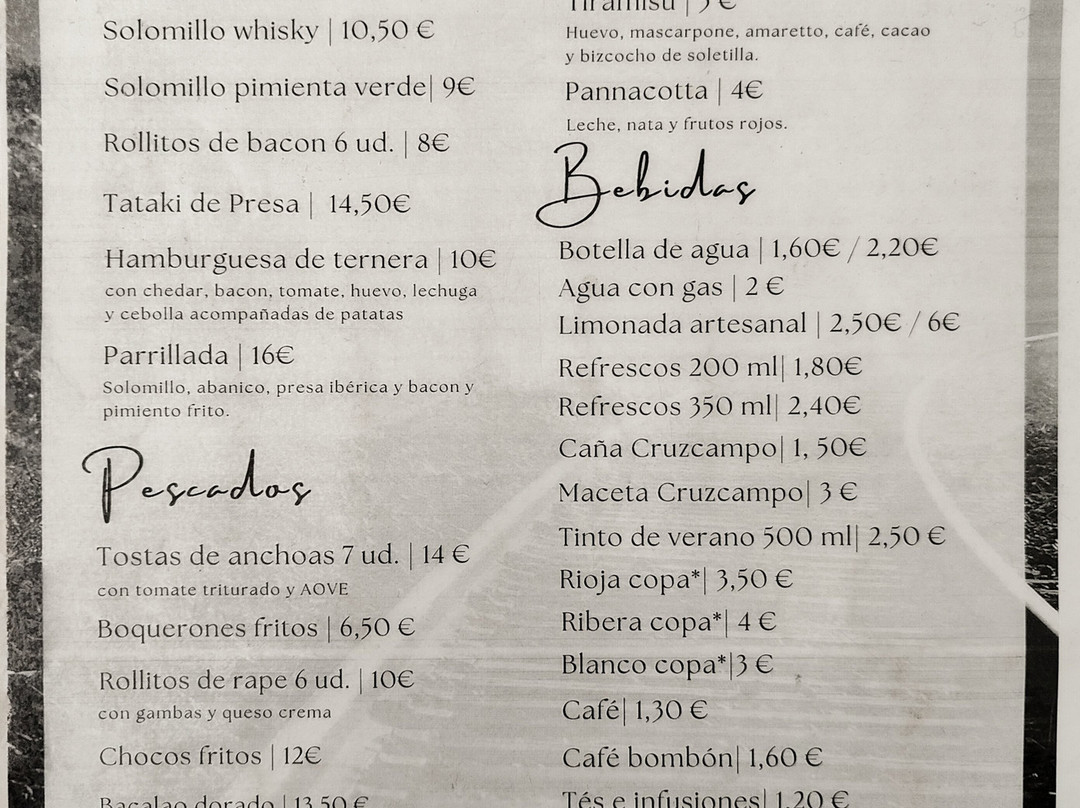 Solomillo whisky | 10,50 €
Solomillo pimienta verde| 9€
Rollitos de bacon 6 ud. | 8€
Tataki de Presa | 14,50€
Hamburguesa de ternera | 10€
con chedar, bacon, tomate, huevo, lechuga
y cebolla acompañadas de patatas
Parrillada | 16€
Solomillo, abanico, presa ibérica y bacon y
pimiento frito.
Pescados
Tostas de anchoas 7 ud. | 14 €
con tomate triturado y AOVE
Boquerones fritos | 6,50 €
Rollitos de rape 6 ud. | 10€
con gambas y queso crema
Chocos fritos | 12€
Bacalao dorado | 13,50 €
Tiramisú | 5 €
Huevo, mascarpone, amaretto, café, cacao
y bizcocho de soletilla.
Pannacotta | 4€
Leche, nata y frutos rojos.
Bebidas
Botella de agua | 1,60€ / 2,20€
Agua con gas | 2 €
Limonada artesanal | 2,50€ / 6€
Refrescos 200 ml| 1,80€
Refrescos 350 ml| 2,40€
Caña Cruzcampo| 1, 50€
Maceta Cruzcampo| 3 €
Tinto de verano 500 ml| 2,50 €
Rioja copa*| 3,50 €
Ribera copa*| 4 €
Blanco copa*|3 €
Café| 1,30 €
Café bombón| 1,60 €
Tés e infusiones| 1,20 €